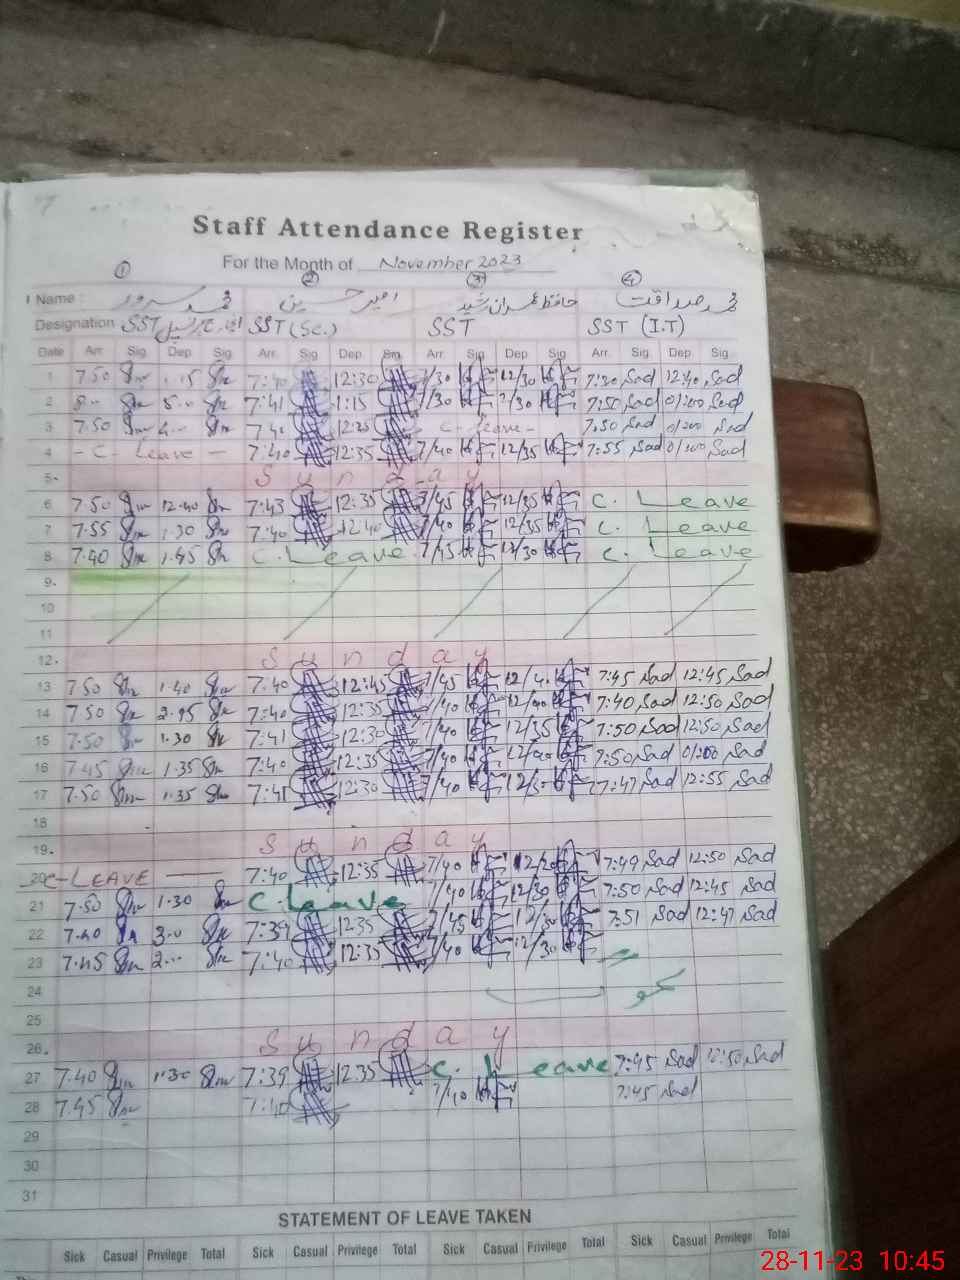 Staff Attendance Register
For the Month of November 2023
① ② ③ ④
Name : محمد سرور امیر حسین حافظ عمران رشید محمد صداقت
Designation SST SST (Sc.) SST SST (I.T)
Date Arr. Sig Dep Sig Arr. Sig Dep Sig Arr. Sig Dep Sig Arr. Sig Dep Sig
1 7.50 7:40 12:30 7/30 12/30 7:30 Sad 12:40 Sad
2 7:41 1:15 7/30 7:50 Sad 01:00 Sad
3 7.50 C - Leave - 7.50 Sad 01:00 Sad
4 - C - Leave - 7:40 12:35 7/40 12/35 7:55 Sad 01:00 Sad
5. Sunday
6 7.50 12.40 7:43 12:35 7/45 12/35 C. Leave
7 7.55 1.30 7:40 12:40 7/40 12/35 C. Leave
8 7.40 1.45 C. Leave 7/45 12/30 C. Leave
9.
10
11
12. Sunday
13 7.50 1.40 7:40 12:45 7/45 7:45 Sad 12:45 Sad
14 7.50 2.45 7:40 12:35 7/40 12/40 7:40 Sad 12:50 Sad
15 7.50 1.30 7:41 12:30 7/40 12/35 7:50 Sad 12:50 Sad
16 7.45 1.35 7:40 12:35 7/40 12/40 7:50 Sad 01:00 Sad
17 7.50 1.35 7:41 12:30 7/40 7:47 Sad 12:55 Sad
18
19. Sunday
20 C-LEAVE 7:40 12:35 7/40 12/20 7:49 Sad 12:50 Sad
21 7.50 1.30 C. Leave 7/40 12/30 7:50 Sad 12:45 Sad
22 7.40 3.0 7:39 12:35 7/45 12/30 7:51 Sad 12:47 Sad
23 7.45 7:40 12:35 7/40 12/30
24
25
26. Sunday
27 7.40 1.30 7:39 12:35 C. Leave 7:45 Sad 12:50 Sad
28 7.45 7:40 7/40 7:45 Sad
29
30
31
STATEMENT OF LEAVE TAKEN
Sick Casual Privilege Total Sick Casual Privilege Total Sick Casual Privilege Total Sick Casual Privilege Total
28-11-23 10:45